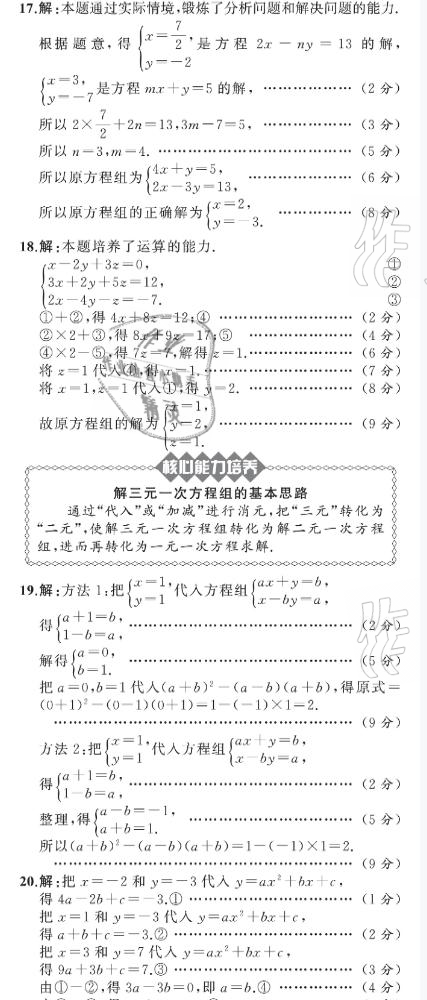 17.解:本题通过实际情境,锻炼了分析问题和解决问题的能力.
根据题意,得{x=7/2, y=-2 是方程 2x-ny=13 的解,
{x=3, y=-7 是方程 mx+y=5 的解, ……………… (2 分)
所以 2×7/2+2n=13,3m-7=5, ……………… (3 分)
所以 n=3,m=4. ……………… (5 分)
所以原方程组为{4x+y=5, 2x-3y=13, ……………… (6 分)
所以原方程组的正确解为{x=2, y=-3. ……………… (8 分)
18.解:本题培养了运算的能力.
{x-2y+3z=0, ①
3x+2y+5z=12, ②
2x-4y-z=-7. ③
①+②,得 4x+8z=12;④ ……………… (2 分)
②×2+③,得 8x+9z=17;⑤ ……………… (4 分)
④×2-⑤,得 7z=7,解得 z=1. ……………… (6 分)
将 z=1 代入④,得 x=1. ……………… (7 分)
将 x=1,z=1 代入①,得 y=2. ……………… (8 分)
故原方程组的解为{x=1, y=2, z=1. ……………… (9 分)
核心能力培养
解三元一次方程组的基本思路
通过“代入”或“加减”进行消元,把“三元”转化为
“二元”,使解三元一次方程组转化为解二元一次方程
组,进而再转化为一元一次方程求解.
19.解:方法 1:把{x=1, y=1 代入方程组{ax+y=b, x-by=a,
得{a+1=b, 1-b=a, ……………… (2 分)
解得{a=0, b=1. ……………… (5 分)
把 a=0,b=1 代入(a+b)²-(a-b)(a+b),得原式=
(0+1)²-(0-1)(0+1)=1-(-1)×1=2.
……………… (9 分)
方法 2:把{x=1, y=1 代入方程组{ax+y=b, x-by=a,
得{a+1=b, 1-b=a, ……………… (2 分)
整理,得{a-b=-1, a+b=1. ……………… (5 分)
所以(a+b)²-(a-b)(a+b)=1-(-1)×1=2.
……………… (9 分)
20.解:把 x=-2 和 y=-3 代入 y=ax²+bx+c,
得 4a-2b+c=-3.① ……………… (1 分)
把 x=1 和 y=-3 代入 y=ax²+bx+c,
得 a+b+c=-3.② ……………… (2 分)
把 x=3 和 y=7 代入 y=ax²+bx+c,
得 9a+3b+c=7.③ ……………… (3 分)
由①-②,得 3a-3b=0,即 a=b.④ ……………… (4 分)